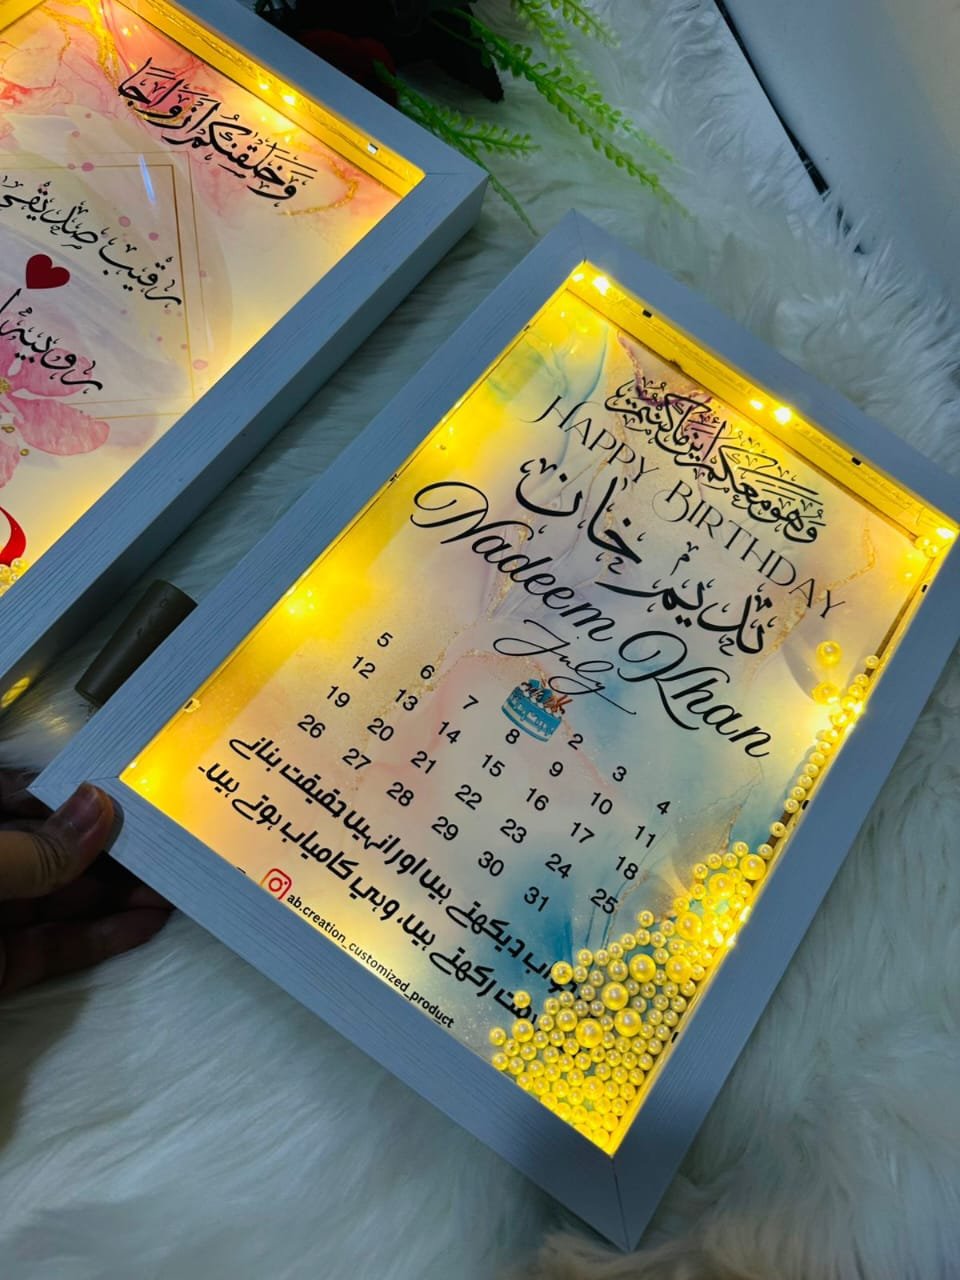 وَخَلَقْنَٰكُمْ أَزْوَٰجًا
رقیب صدیقی
وَهُوَ مَعَكُمْ أَيْنَ مَا كُنتُمْ
HAPPY BIRTHDAY
ندیم خان
Nadeem Khan
July
2 3 4
5 6 7 8 9 10 11
12 13 14 15 16 17 18
19 20 21 22 23 24 25
26 27 28 29 30 31
دیکھتے ہیں اور انہیں حقیقت بنانے
رکھتے ہیں، وہی کامیاب ہوتے ہیں۔
ab.creation_customized_product